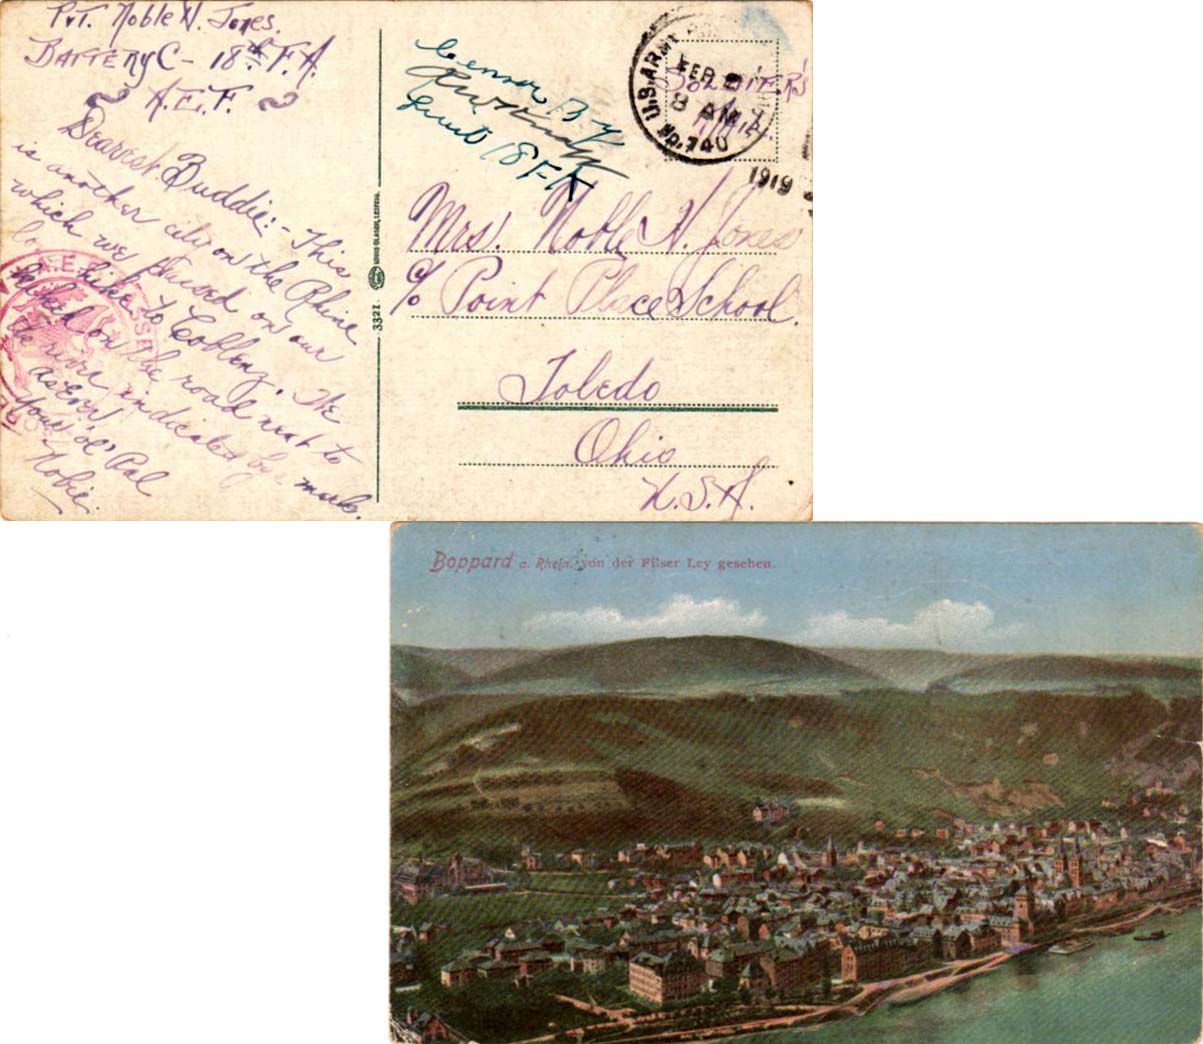 Pvt. Noble H. Jones.
Battery C - 18th F.A.
A.E.F.
Dearest Buddie:- This
is another city on the Rhine
which we passed on our
hike to Coblenz. We
hiked on the road next to
the river indicated by mark.
As Ever
Your ol' Pal
Nobie.
A.E.F.
3321.
LOUIS GLASER, LEIPZIG.
Censor By
Lieut 18 F-A
U.S. ARMY
FEB
8 AM
No. 740
1919
SOLDIER'S
MAIL.
Mrs. Noble H. Jones
c/o Point Place School.
Toledo
Ohio
U.S.A.
Boppard a. Rhein. von der Filser Ley gesehen.